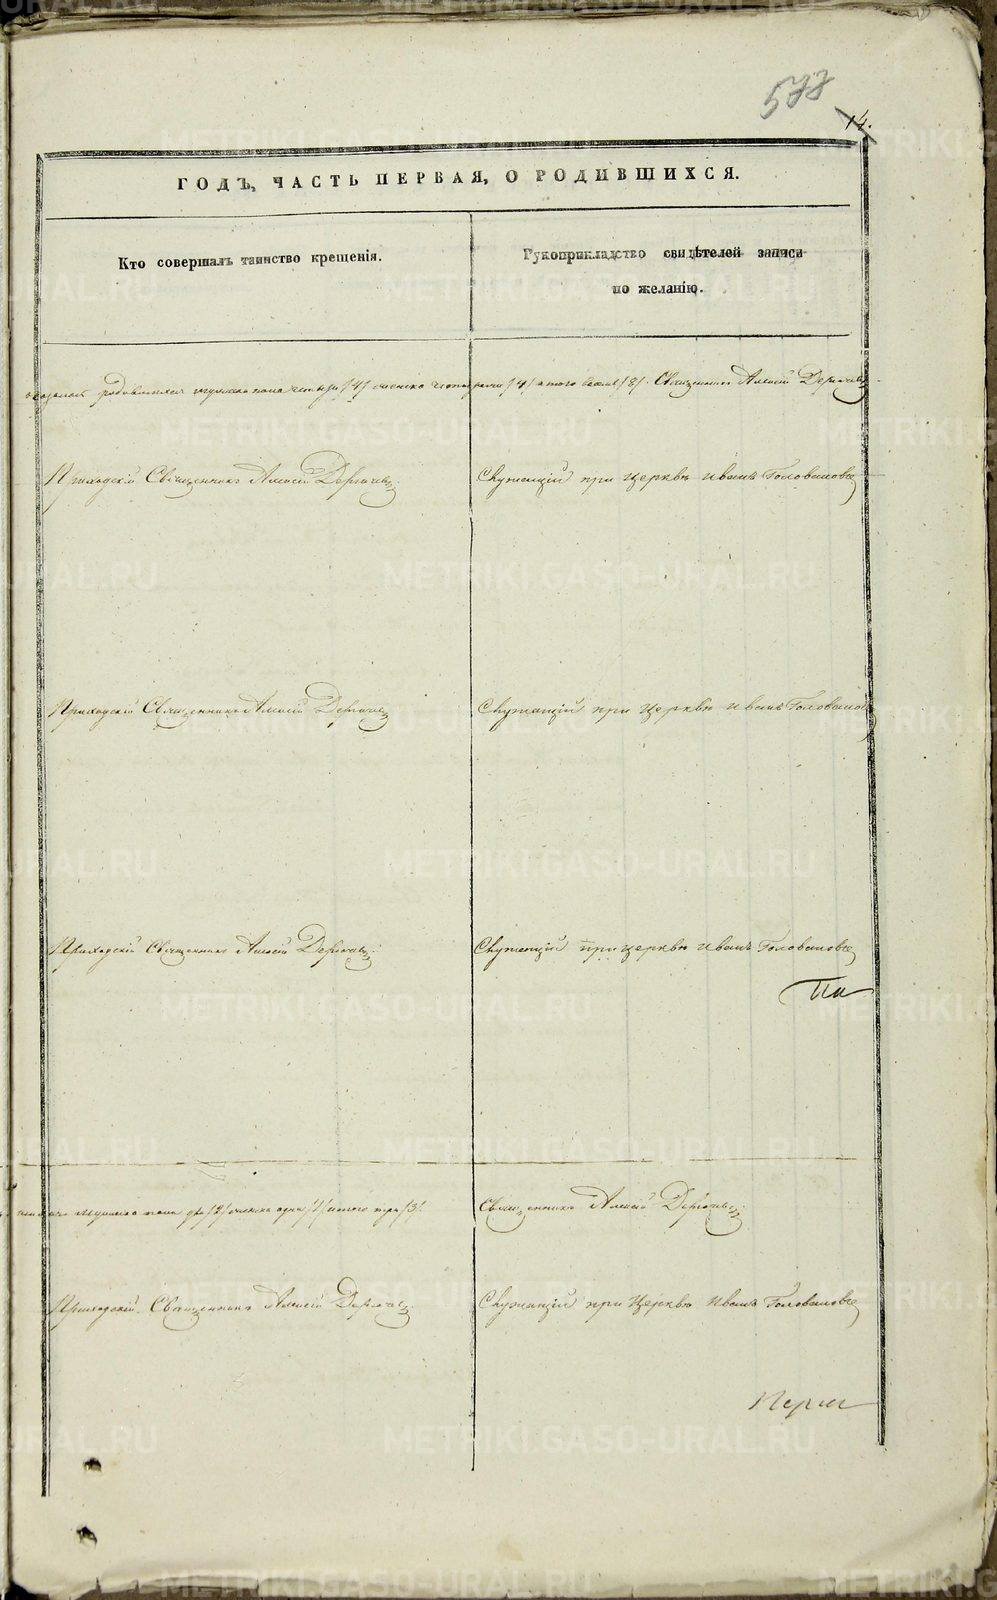 577
14.
ГОДЪ, ЧАСТЬ ПЕРВАЯ, О РОДИВШИХСЯ.
Кто совершалъ таинство крещенія.
Рукоприкладство свидѣтелей записи по желанію.
родившихся мужеска пола четыре /4/ женска четыре /4/ а того восемь /8/. Священникъ Алексій
Приходскій Священникъ Алексій
Служащій при Церквѣ Иванъ Головановъ
Приходскій Священникъ Алексій
Служащій при Церквѣ Иванъ Головановъ
Приходскій Священникъ Алексій
Служащій при Церквѣ Иванъ Головановъ
мужеска пола два /2/ женска одна /1/ итого три /3/.
Священникъ Алексій
Приходскій Священникъ Алексій
Служащій при Церквѣ Иванъ Головановъ
METRIKI.GASO-URAL.RU